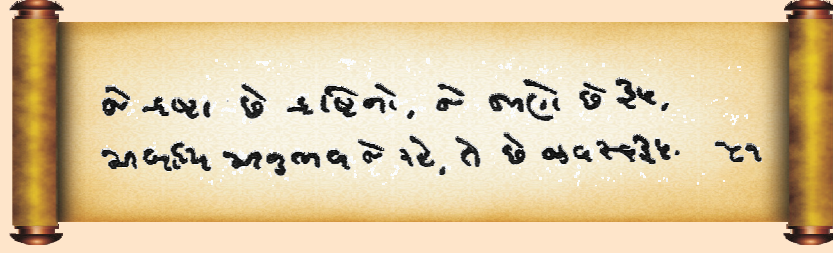 જે દ્રષ્ટા છે દ્રષ્ટિનો, જે જાણે છે રૂપ,
અબાધ્ય અનુભવ જે રહે, તે છે જીવસ્વરૂપ. ૫૧